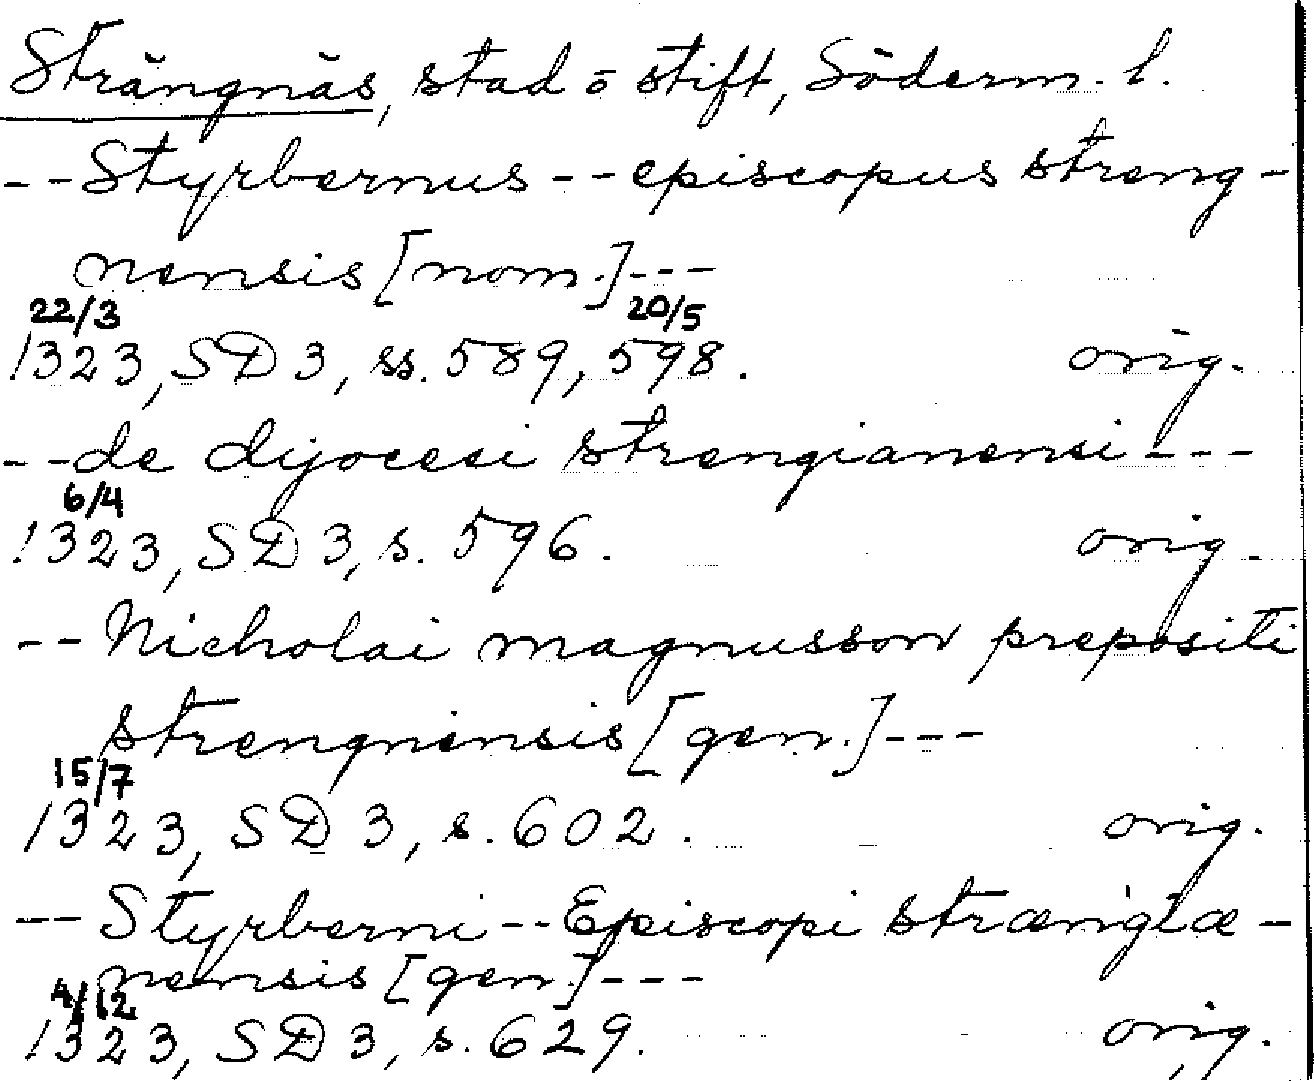 Strängnäs, stad o stift, Söderm. l.
--Styrbernus--episcopus streng-
nensis [nom.]---
22/3 20/5
1323, SD 3, ss. 589, 598. orig.
--de dijocesi strengianensi---
6/4
1323, SD 3, s. 596. orig.
--Nicholai magnusson prepositi
strengnensis [gen.]---
15/7
1323, SD 3, s. 602. orig.
--Styrberni--Episcopi strængiæ-
nensis [gen.]---
4/12
1323, SD 3, s. 629. orig.